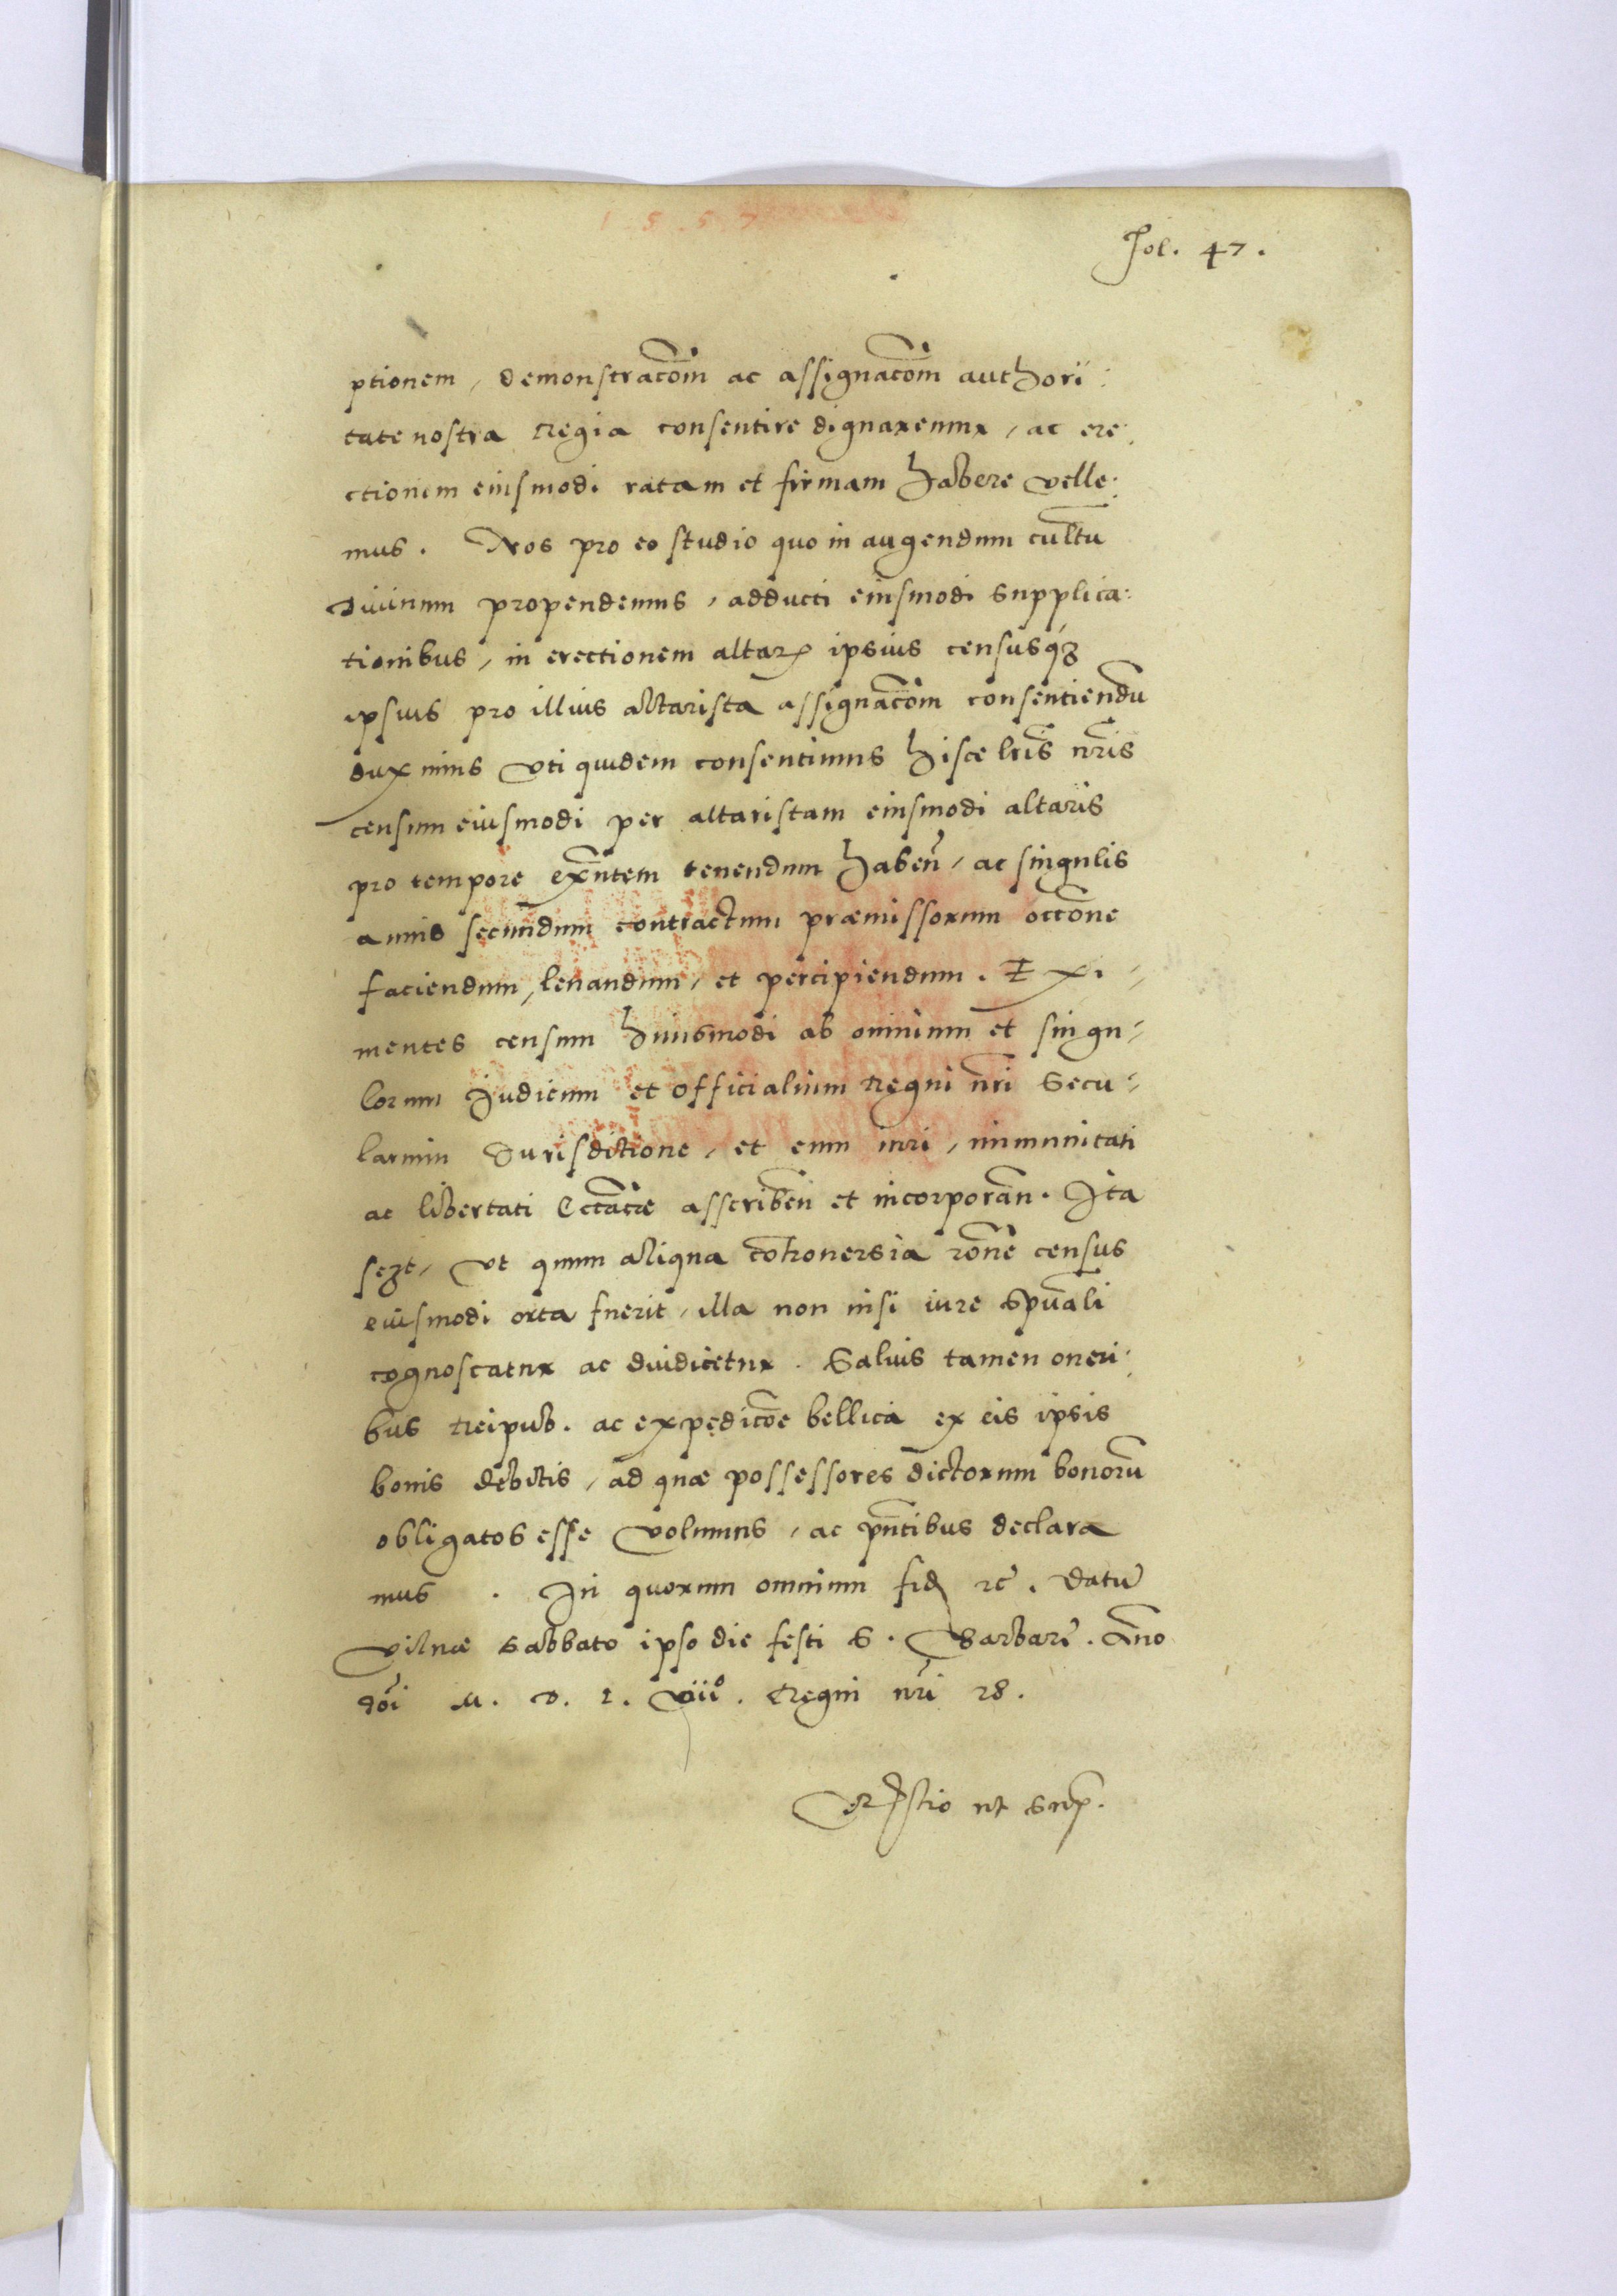 1557
Fol. 47.
ptionem, demonstracōm ac assignacōm authori:
tate nostra Regia consentire dignaremur, ac ere:
ctionem eiusmodi ratam et firmam habere velle:
mus. Nos pro eo studio quo in augendum cultū
diuinum propendemus, adducti eiusmodi supplica:
tionibus, in erectionem altar. ipsius censusq3
ipsius pro illius altarista assignacōm consentiendū
duximus vti quidem consentimus hisce lr̄is nr̄is
censum eiusmodi per altaristam eiusmodi altaris
pro tempore exn̄tem tenendum habeñ, ac singulis
annis secundum contractum præmissorum occōne
faciendum, leuandum, et percipiendum. Exi:
mentes censum huiusmodi ab omnium et singu:
lorum Judicum et officialium Regni nr̄i Secu:
larium Jurisdictione, et eum iuri, immunitati
ac libertati Eccācæ asscribeñ et incorporañ. Ita
sczt, vt quum aliqua cōtrouersia rōne census
eiusmodi orta fuerit, illa non nisi iure Spūali
cognoscatur ac diudicetur. Saluis tamen oneri:
bus Reipub. ac expedicōe bellica ex eis ipsis
bonis debitis, ad quæ possessores dictorum bonorū
obligatos esse volumus, ac pn̄tibus declara
mus. In quorum omnium fid. rc̄. Datū
Vilnæ Sabbato ipso die festi S. Barbaræ. Anno
dōi M. D. L. viiº. Regni nr̄i 28.
Relatio ut Sup.